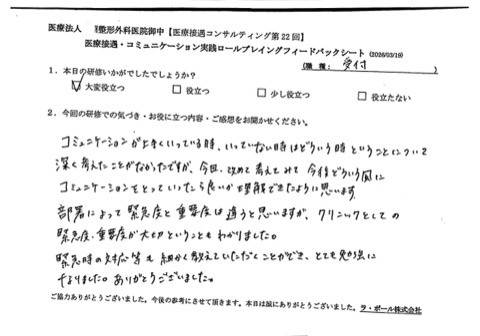 医療法人 整形外科医院御中【医療接遇コンサルティング第22回】
医療接遇・コミュニケーション実践ロールプレイングフィードバックシート (2026/03/19)
(職種: 受付 )
1. 本日の研修いかがでしたでしょうか?
☑ 大変役立つ □ 役立つ □ 少し役立つ □ 役立たない
2. 今回の研修での気づき・お役に立つ内容・ご感想をお聞かせください。
コミュニケーションが上手くいっている時、いっていない時はどういう時ということについて
深く考えたことがなかったですが、今回、改めて考えてみて今後どういう風に
コミュニケーションをとっていったら良いか理解できたように思います。
部署によって緊急度と重要度は違うと思いますが、クリニックとしての
緊急度、重要度が大切ということもわかりました。
緊急時の対応等も細かく教えていただくことができ、とても勉強に
なりました。ありがとうございました。
ご協力ありがとうございました。今後の参考にさせて頂きます。本日は誠にありがとうございました。ラ・ポール株式会社